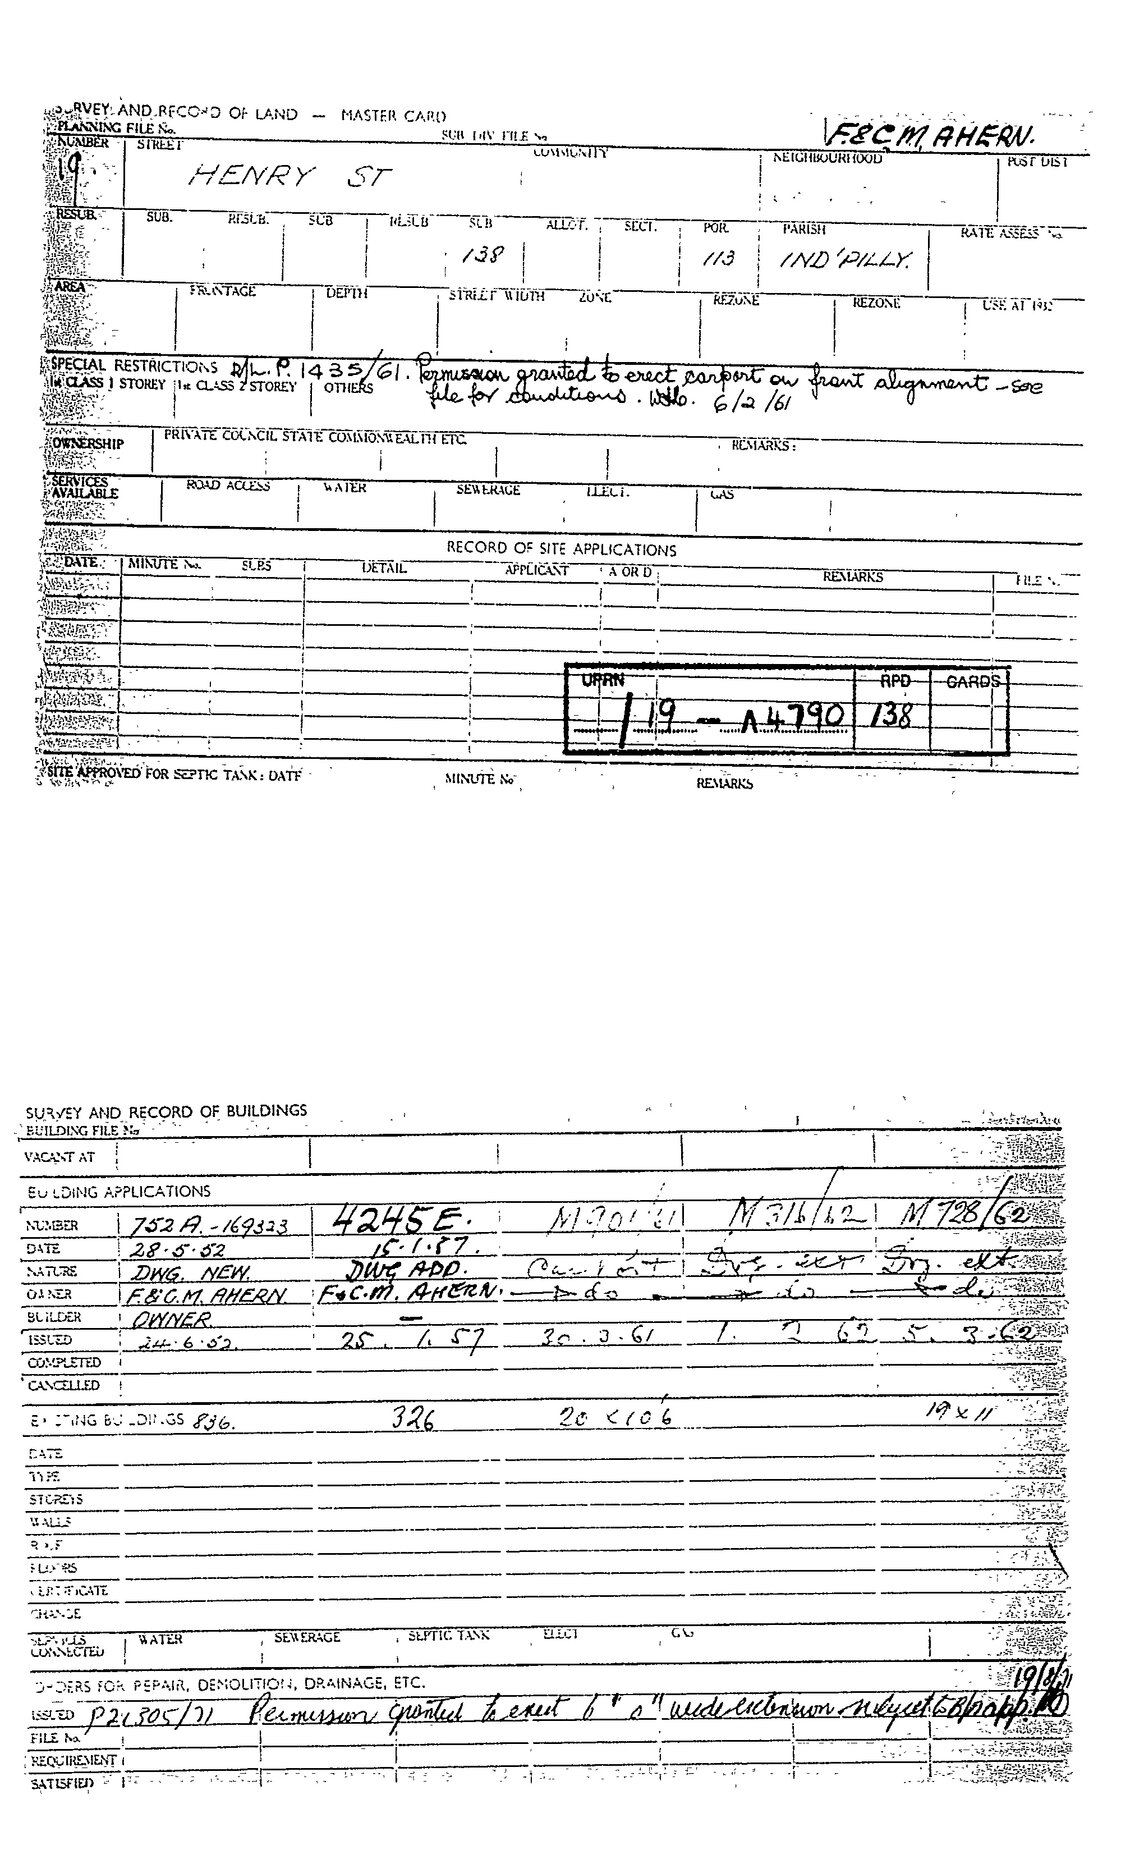 SURVEY AND RECORD OF LAND — MASTER CARD
PLANNING FILE No. SUB DIV FILE No F.&C.M. AHERN.
NUMBER STREET COMMUNITY NEIGHBOURHOOD POST DIST
19 HENRY ST
RESUB. SUB. RESUB. SUB RESUB SUB ALLOT. SECT. POR. PARISH RATE ASSESS No
138 113 IND'PILLY.
AREA FRONTAGE DEPTH STREET WIDTH ZONE REZONE REZONE USE AT 1952
SPECIAL RESTRICTIONS R/L.P. 1435/61. Permission granted to erect carport on front alignment – see
1st CLASS 1 STOREY 1st CLASS 2 STOREY OTHERS file for conditions. 6/2/61
OWNERSHIP PRIVATE COUNCIL STATE COMMONWEALTH ETC. REMARKS:
SERVICES AVAILABLE ROAD ACCESS WATER SEWERAGE ELECT. GAS
RECORD OF SITE APPLICATIONS
DATE MINUTE No. SUBS DETAIL APPLICANT A OR D REMARKS FILE N.
UPRN RPD CARDS
/ 19 — A4790 138
SITE APPROVED FOR SEPTIC TANK: DATE MINUTE No REMARKS
SURVEY AND RECORD OF BUILDINGS
BUILDING FILE No
VACANT AT
BUILDING APPLICATIONS
NUMBER 752A.-169323 4245E. M 316/62 M 728/62
DATE 28·5·52 15·1·57.
NATURE DWG. NEW. DWG ADD. Carport Dwg. ext Dwg. ext.
OWNER F.&C.M. AHERN. F&C.M. AHERN. do do do
BUILDER OWNER. —
ISSUED 24·6·52. 25. 1. 57 30. 3. 61 1. 2 62 5. 3. 62
COMPLETED
CANCELLED
EXISTING BUILDINGS 836. 326 20 x 10'6 19 x 11
DATE
TYPE
STOREYS
WALLS
ROOF
FLOORS
CERTIFICATE
CHANGE
SERVICES CONNECTED WATER SEWERAGE SEPTIC TANK ELECT GAS
ORDERS FOR REPAIR, DEMOLITION, DRAINAGE, ETC.
ISSUED P21305/71 Permission granted to erect wide extension subject to app.
FILE No
REQUIREMENT
SATISFIED